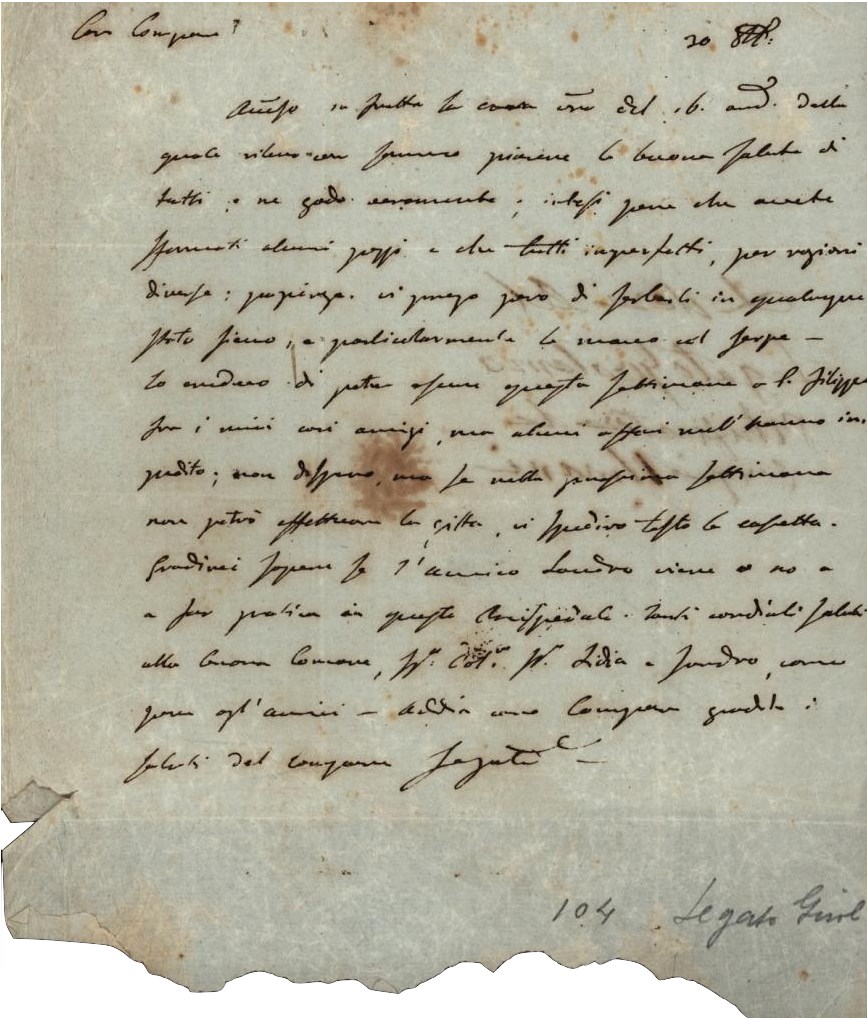 Caro Compare
20 8bre:
in fretta la cara vra del 16. and. dalla
quale rilevo con sommo piacere la buona salute di
tutti, e ne godo veramente; intesi pure che avete
sformati alcuni pezzi e che tutti imperfetti, per ragioni
diverse; pazienza. vi prego però di serbarli in qualunque
stato sieno, e particolarmente la mano col serpe —
Io credevo di poter essere questa settimana a S. Filippo
fra i miei cari amici, ma alcuni affari me l'hanno im-
pedito; non dispero, ma se nella prossima settimana
non potrò effettuare la gitta, vi spedirò tosto la cassetta.
Gradirei sapere se l'amico Sandro viene o no a
a far pratica in questo Arcispedale. tanti cordiali saluti
alla buona Comare, Lidia e Sandro, come
pure agl'amici — Addio caro Compare gradite i
saluti del compare Segato
104 Segato Girol